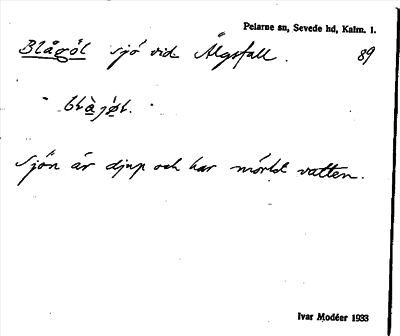 Pelarne sn, Sevede hd, Kalm. l.
Blågöl sjö vid Älgsfall. 89
blàjø̀l.
Sjön är djup och har mörkt vatten.
Ivar Modéer 1933